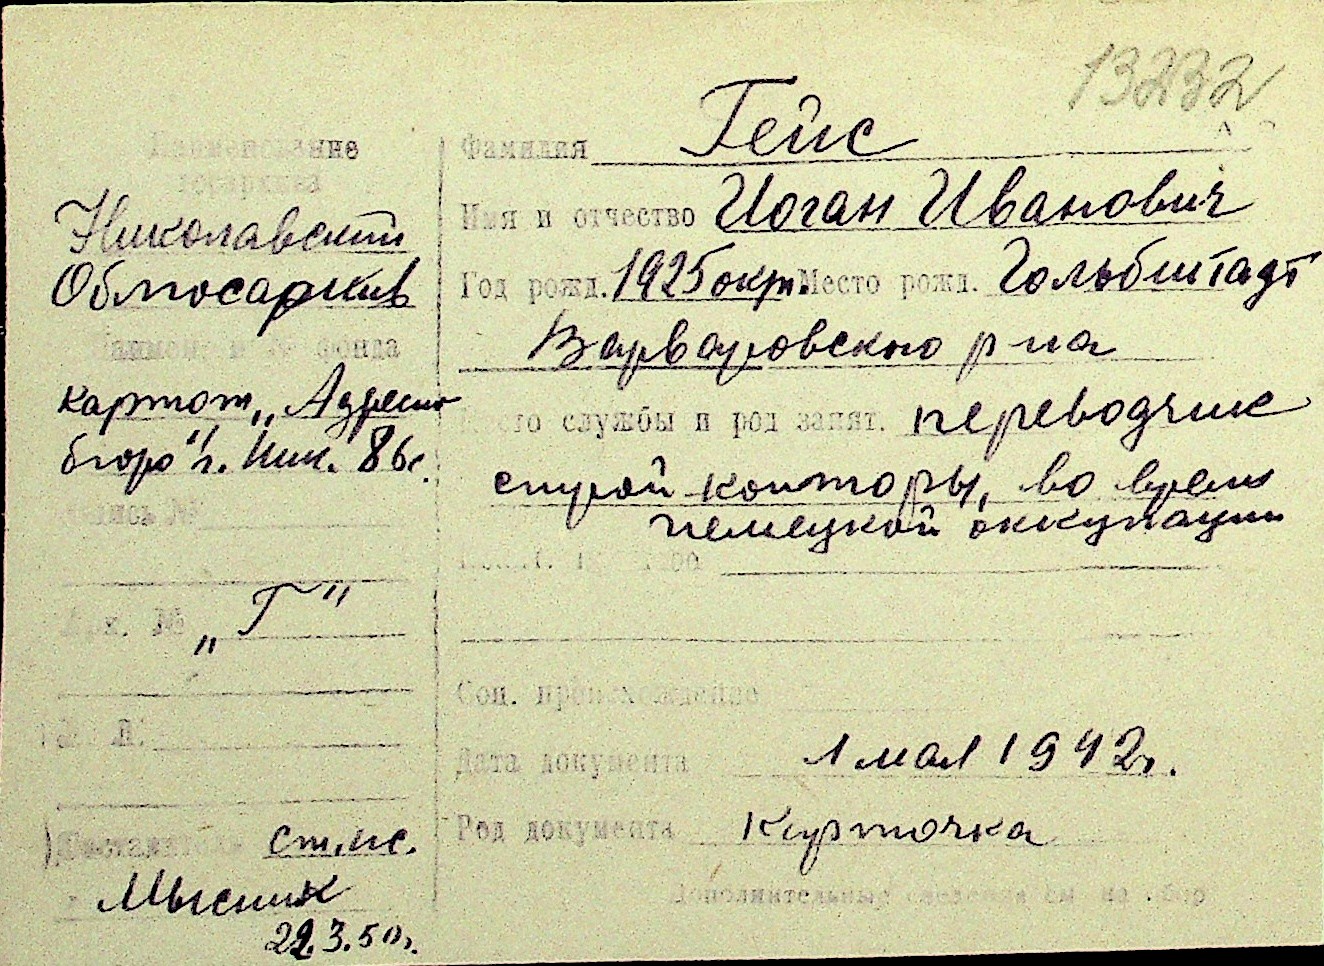 13232
Наименование
госархива
Николавский
Облгосархив
Наимен. и № фонда
картот. „Адресно
бюро" г. Ник. 86с.
Опись №
Арх. № „Г"
№ л.
Составитель ст. нс.
Мысник
22.3.50г.
Фамилия Гейс
Имя и отчество Иоган Иванович
Год рожд. 1925 окт. Место рожд. Гольбштадт
Варваровского р-на
Место службы и род занят. переводчик
конторы, во время
немецкой оккупации
Соц. происхождение
Дата документа 1 мая 1942г.
Род документа Карточка
Дополнительные сведения см на обор